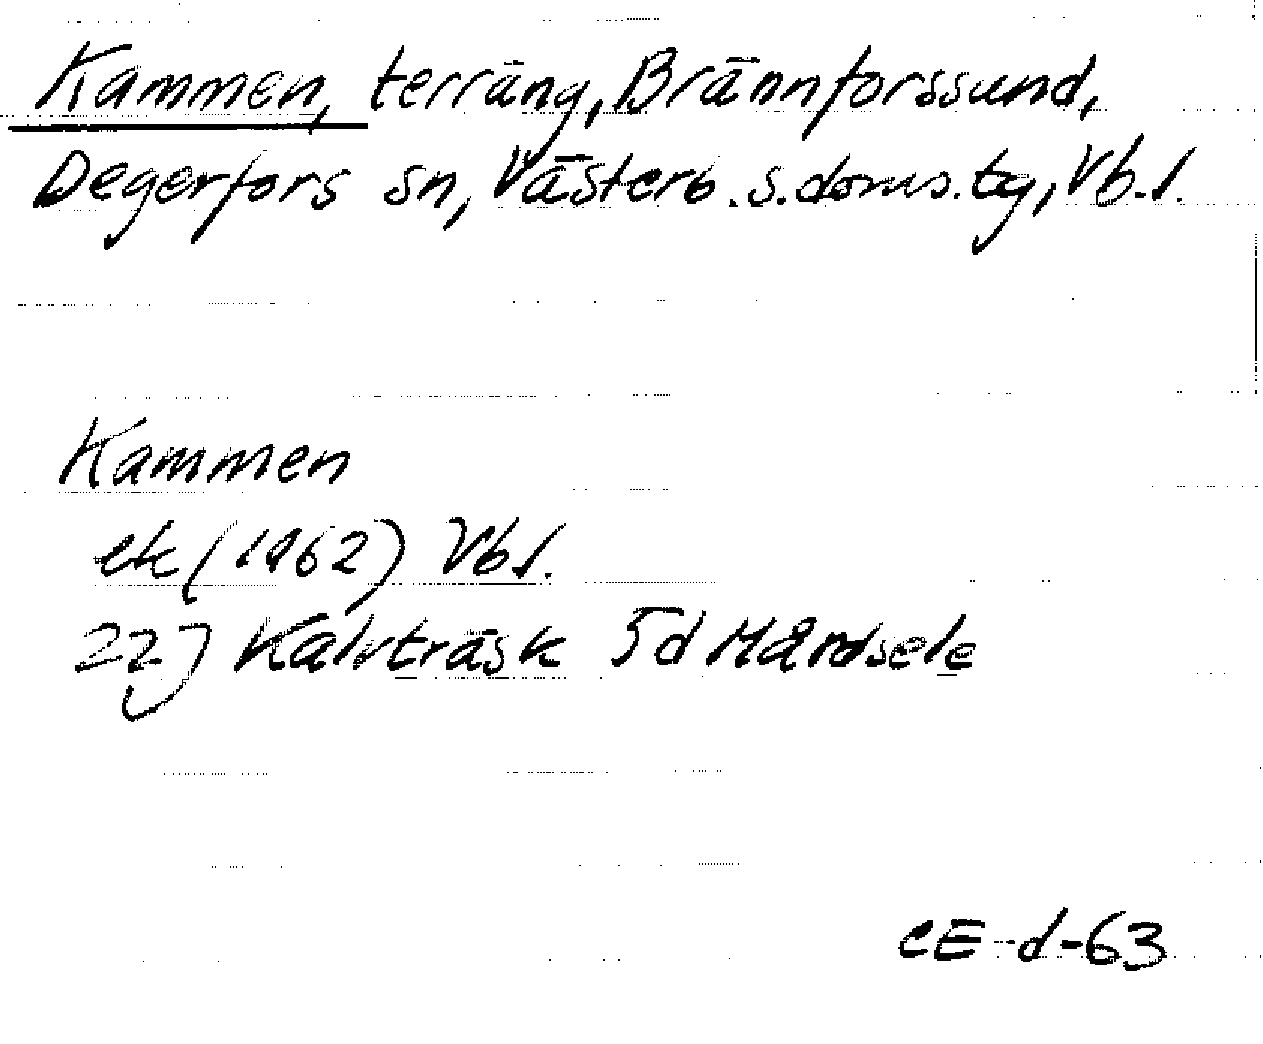 Kammen, terräng, Brännforssund,
Degerfors sn, Västerb. s. doms. tg, Vb. l.
Kammen
ek (1962) Vb l.
22J Kalvträsk 5d Mårdsele
CE-d-63